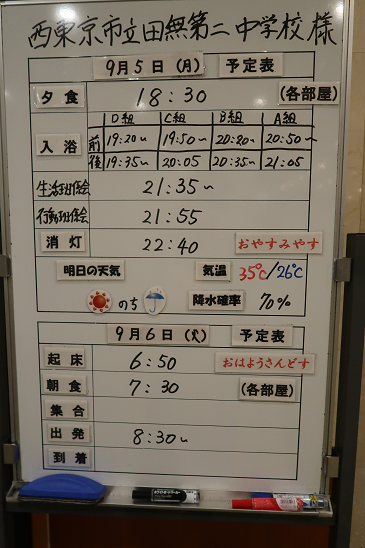 西東京市立田無第二中学校 様
9月5日(月) 予定表
夕食 18:30 (各部屋)
D組 C組 B組 A組
入浴 前 19:20〜 19:50〜 20:20〜 20:50〜
後 19:35〜 20:05 20:35〜 21:05
生活班係会 21:35〜
行動班係会 21:55
消灯 22:40 おやすみやす
明日の天気 気温 35℃/26℃
のち 降水確率 70%
9月6日(火) 予定表
起床 6:50 おはようさんどす
朝食 7:30 (各部屋)
集合
出発 8:30〜
到着